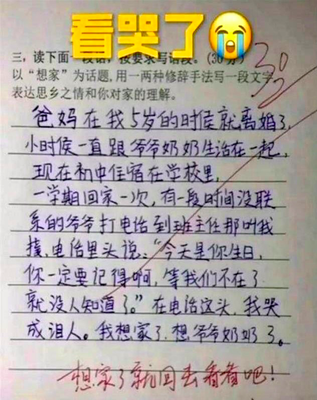 看哭了
三、读下面一段话，按要求写语段。(30分)
30
以“想家”为话题,用一两种修辞手法写一段文字,
表达思乡之情和你对家的理解。
爸妈在我5岁的时候就离婚了,
小时候一直跟爷爷奶奶生活在一起,
现在初中住宿在学校里,
一学期回家一次,有一段时间没联
系的爷爷打电话到班主任那叫我
接,电话里头说:“今天是你生日,
你一定要记得啊,等我们不在了
就没人知道了。”在电话这头,我哭
成泪人。我想家了,想爷爷奶奶了。
想家了就回去看看吧!